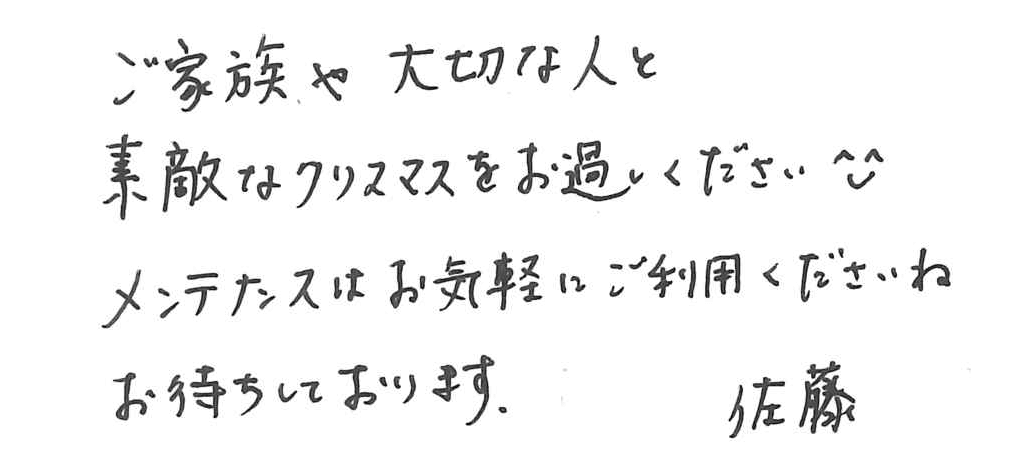 ご家族や大切な人と
素敵なクリスマスをお過しください^^
メンテナンスはお気軽にご利用くださいね
お待ちしております.
佐藤